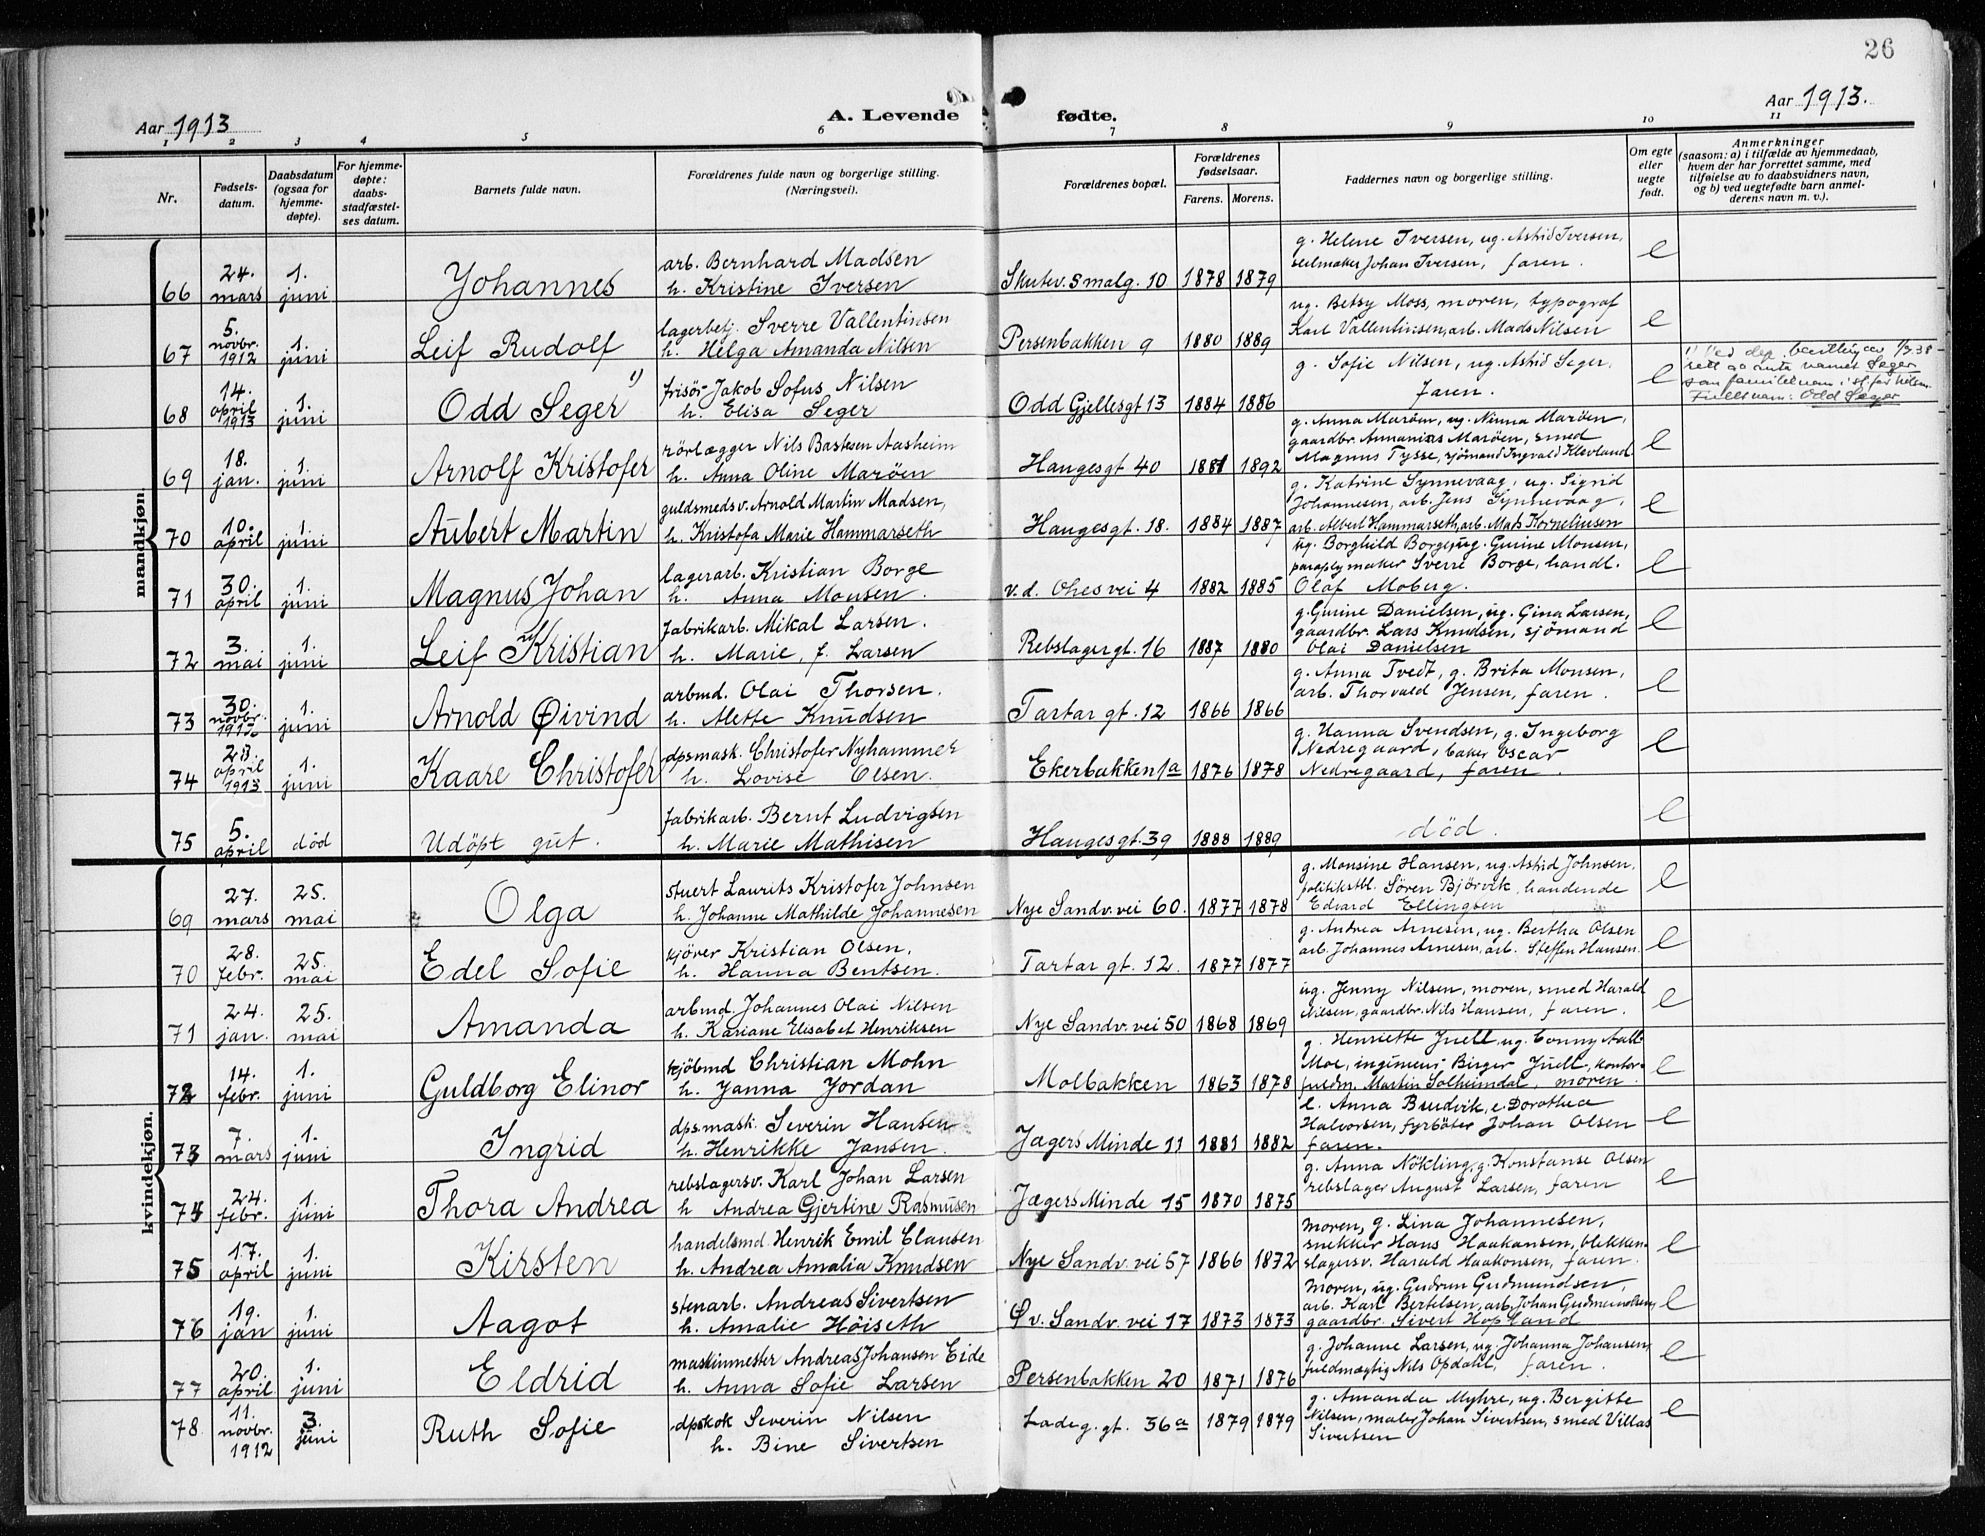 26
Aar 1913
A. Levende fødte.
Aar 1913.
1 2 3 4 5 6 7 8 9 10 11
Nr.
Fødsels-
datum.
Daabsdatum
(ogsaa for
hjemme-
døpte).
For hjemme-
døpte:
daabs-
stadfæstel-
ses datum.
Barnets fulde navn.
Forældrenes fulde navn og borgerlige stilling.
(Næringsvei).
Forældrenes bopæl.
Forældrenes
fødselsaar.
Farens. Morens.
Faddernes navn og borgerlige stilling.
Om egte
eller
uegte
født.
Anmerkninger
(saasom: a) i tilfælde av hjemmedaab,
hvem der har forrettet samme, med
tilføielse av to daabsvidners navn,
og b) ved uegtefødte barn anmel-
derens navn m. v.).
mandkjøn
66 24. mars 1. juni Johannes
arb. Bernhard Madsen
h. Kristine Iversen
Skutev. Smalg. 10 1878 1879
g. Helene Iversen, ug. Astrid Iversen,
seilmaker Johan Iversen, faren. e
67 5. novbr. 1912 1. juni Leif Rudolf
lagerbetj. Sverre Vallentinsen
h. Helga Amanda Nilsen
Persenbakken 9 1880 1889
ug. Betsy Moss, moren, typograf
Karl Vallentinsen, arb. Mads Nilsen e
68 14. april 1913 1. juni Odd Seger 1)
frisør Jakob Sofus Nilsen
h. Elisa Seger
Odd Gjellesgt 13 1884 1886
g. Sofie Nilsen, ug. Astrid Seger,
faren. e
1) Ved dep. bevilling av 1/3 38
rett aa anta navnet Seger
som familienavn
Fulle navn: Odd Seger
69 18. jan. 1. juni Arnolf Kristofer
rörlægger Nils Bastesen Aasheim
h. Anna Oline Marøen
Haugesgt 40 1881 1892
g. Anna Marøen, ug. Ninna Marøen,
gaardbr. Annanias Marøen, smed
Magnus Tysse, sjömand Ingvald Klevland e
70 10. april 1. juni Aubert Martin
guldsmedsv. Arnold Martin Madsen,
h. Kristofa Marie Hammarseth
Haugesgt. 18. 1884 1887
g. Katrine Synnevaag, ug. Sigrid
Johannesen, arb. Jens Synnevaag,
arb. Albert Hammarseth, arb. Mats Korneliussen e
71 30. april 1. juni Magnus Johan
lagerarb. Kristian Borge
h. Anna Monsen.
v. d. Ohes vei 4 1882 1885
ug. Borghild Borge, ug. Gurine Monsen,
paraplymaker Sverre Borge, handl.
Olaf Moberg. e
72 3. mai 1. juni Leif Kristian
fabrikarb. Mikal Larsen.
h. Marie, f. Larsen
Rebslagergt. 16 1887 1880
g. Gurine Danielsen, ug. Gina Larsen,
gaardbr. Lars Knudsen, sjömand
Olai Danielsen e
73 30. novbr. 1. juni Arnold Øivind
arbmd. Olai Thorsen.
h. Alette Knudsen
Tartargt. 12 1866 1866
g. Anna Tvedt, g. Brita Monsen,
arb. Thorvald Jensen, faren. e
74 23. april 1913 1. juni Kaare Christofer
dpsmask. Christofer Nyhammer
h. Lovise Olsen.
Ekerbakken 1a 1876 1878
g. Hanna Svendsen, g. Ingeborg
Nedregaard, baker Oscar
Nedregaard, faren. e
75 5. april død Udöpt gut.
fabrikarb. Bernt Ludvigsen
h. Marie Mathisen
Haugesgt. 39 1888 1889
død. e
kvindekjøn.
69 27. mars 25. mai Olga
stuert Laurits Kristofer Johnsen
h. Johanne Mathilde Johannesen
Nye Sandv. vei 60. 1877 1878
g. Monsine Hansen, ug. Astrid Johnsen,
politikstbl. Sören Bjørvik, handlende
Edvard Ellingsen e
70 28. febr. 25. mai Edel Sofie
kjører Kristian Olsen,
h. Hanna Bentsen.
Tartargt. 12. 1877 1877
g. Andrea Arnesen, ug. Bertha Olsen
arb. Johannes Arnesen, arb. Steffen Hansen. e
71 24. jan. 25. mai Amanda
arbmd. Johannes Olai Nilsen
h. Kariane Elisabet Henriksen
Nye Sandv. vei 50 1868 1869
ug. Jenny Nilsen, moren, smed Harald
Nilsen, gaardbr. Nils Hansen, faren. e
72 14. febr. 1. juni Guldborg Elinor
kjöbmd Christian Mohn
h. Janna Jordan
Molbakken 1863 1878
g. Henriette Juell, ug. Conny Aall
Moe, ingenieur Birger Juell, kontor-
fuldm. Martin Solheimdal, moren. e
73 7. mars 1. juni Ingrid
dpsmask. Severin Hansen
h. Henrikke Jansen.
Jægers Minde 11 1881 1882
e. Anna Bruvik, e. Dorothea
Halvorsen, fyrböter Johan Olsen
faren. e
74 24. febr. 1. juni Thora Andrea
rebslagersv. Karl Johan Larsen
h Andrea Gjertine Rasmusen
Jægers Minde 15 1870 1875
g. Anna Nökling, g. Konstanse Olsen
rebslager August Larsen, faren e
75 17. april 1. juni Kirsten
handelsmd. Henrik Emil Clausen
h. Andrea Amalia Knudsen
Nye Sandv. vei 57 1866 1872
moren, g. Lina Johannesen,
snekker Hans Haakonsen, blikken-
slagersv. Harald Haakonsen, faren. e
76 19. jan 1. juni Aagot
stenarb. Andreas Sivertsen
h. Amalie Höiseth
Øv. Sandv. vei 17 1873 1873
moren, ug. Gudrun Gudmundsen,
arb. Karl Bertelsen, arb. Johan Gudmundsen,
gaardbr. Sivert Hopland e
77 20. april 1. juni Eldrid
maskinmester Andreas Johansen Eide
h. Anna Sofie Larsen
Persenbakken 20 1871 1876
g. Johanne Larsen, ug. Johanna Johansen,
fuldmægtig Nils Opdahl, faren. e
78 11. novbr. 1912 3. juni Ruth Sofie
dpskok Severin Nilsen
h. Bine Sivertsen
Ladeg. gt. 36a 1879 1879
g. Amanda Myhre, ug. Bergitte
Nilsen, maler Johan Sivertsen, smed Villas
Sivertsen e